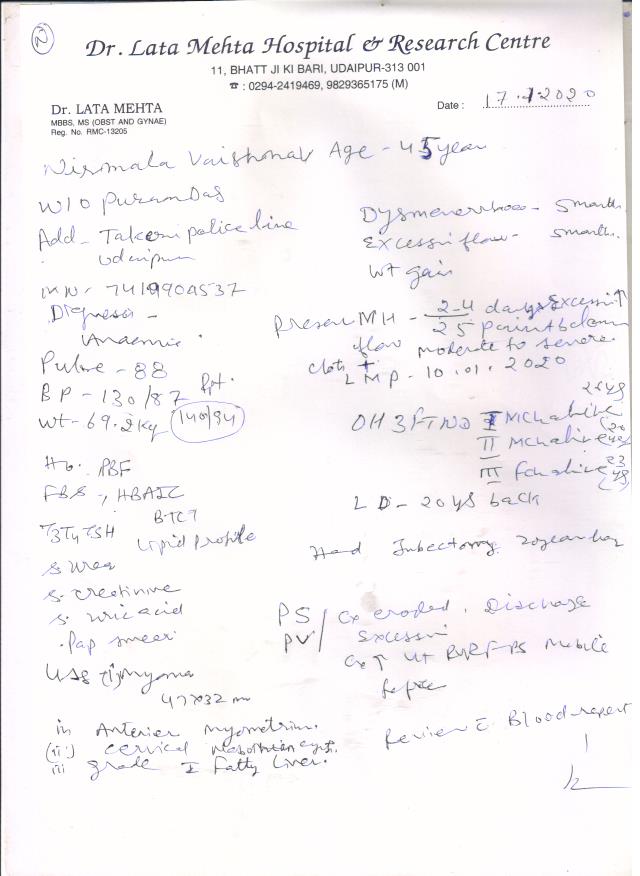 2
Dr. Lata Mehta Hospital & Research Centre
11, BHATT JI KI BARI, UDAIPUR-313 001
☎ : 0294-2419469, 9829365175 (M)
Dr. LATA MEHTA
MBBS, MS (OBST AND GYNAE)
Reg. No. RMC-13205
Date : 17.1.2020
Nirmala Vaishonav Age - 45 year
W/O Puran Das
Add - Takeri police line
Udaipur
Dysmenorrhoea - 5 month
Excessive flow - 5 month.
Wt gain
Anaemia.
Present MH - 2-4 days Excessive
25
flow moderate to severe
clots +
LMP - 10.01.2020
Pulse - 88
BP - 130/87 Rpt.
Wt - 69.2kg 140/94
OH 3FTND I Mch alive
II Mch alive
III Fch alive
LD - 20 ys back
Hb. PBF
FBS -, HBA1C
BTCT
T3T4TSH Lipid Profile
S. Urea
S. Creatinine
S. Uric acid
Pap smear
Had Tubectomy 20 year
PS / Cx eroded. Discharge
PV / Excessive
Cx ↑ Ut Mobile
USG (i) Myoma
47x32 mm
in Anterior myometrium.
(ii) Cervical nabothian cyst.
iii grade I Fatty Liver.
Review c̄ Blood report